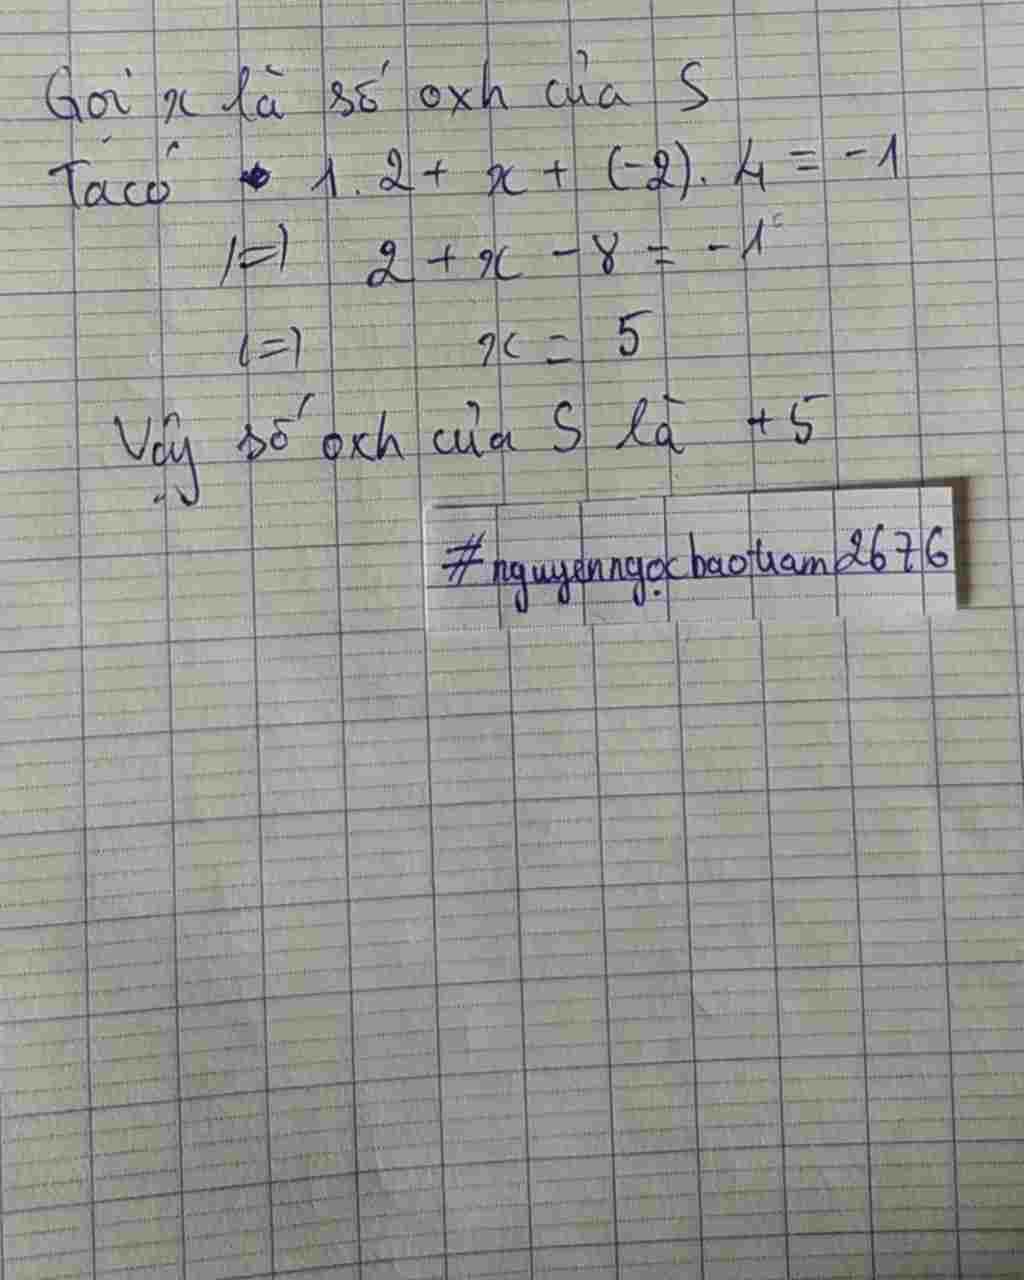 Gọi x là số oxh của S
Ta có 1.2 + x + (-2). 4 = -1
(=) 2 + x - 8 = -1
(=) x = 5
Vậy số oxh của S là +5
#nguyenngọcbaotram2676